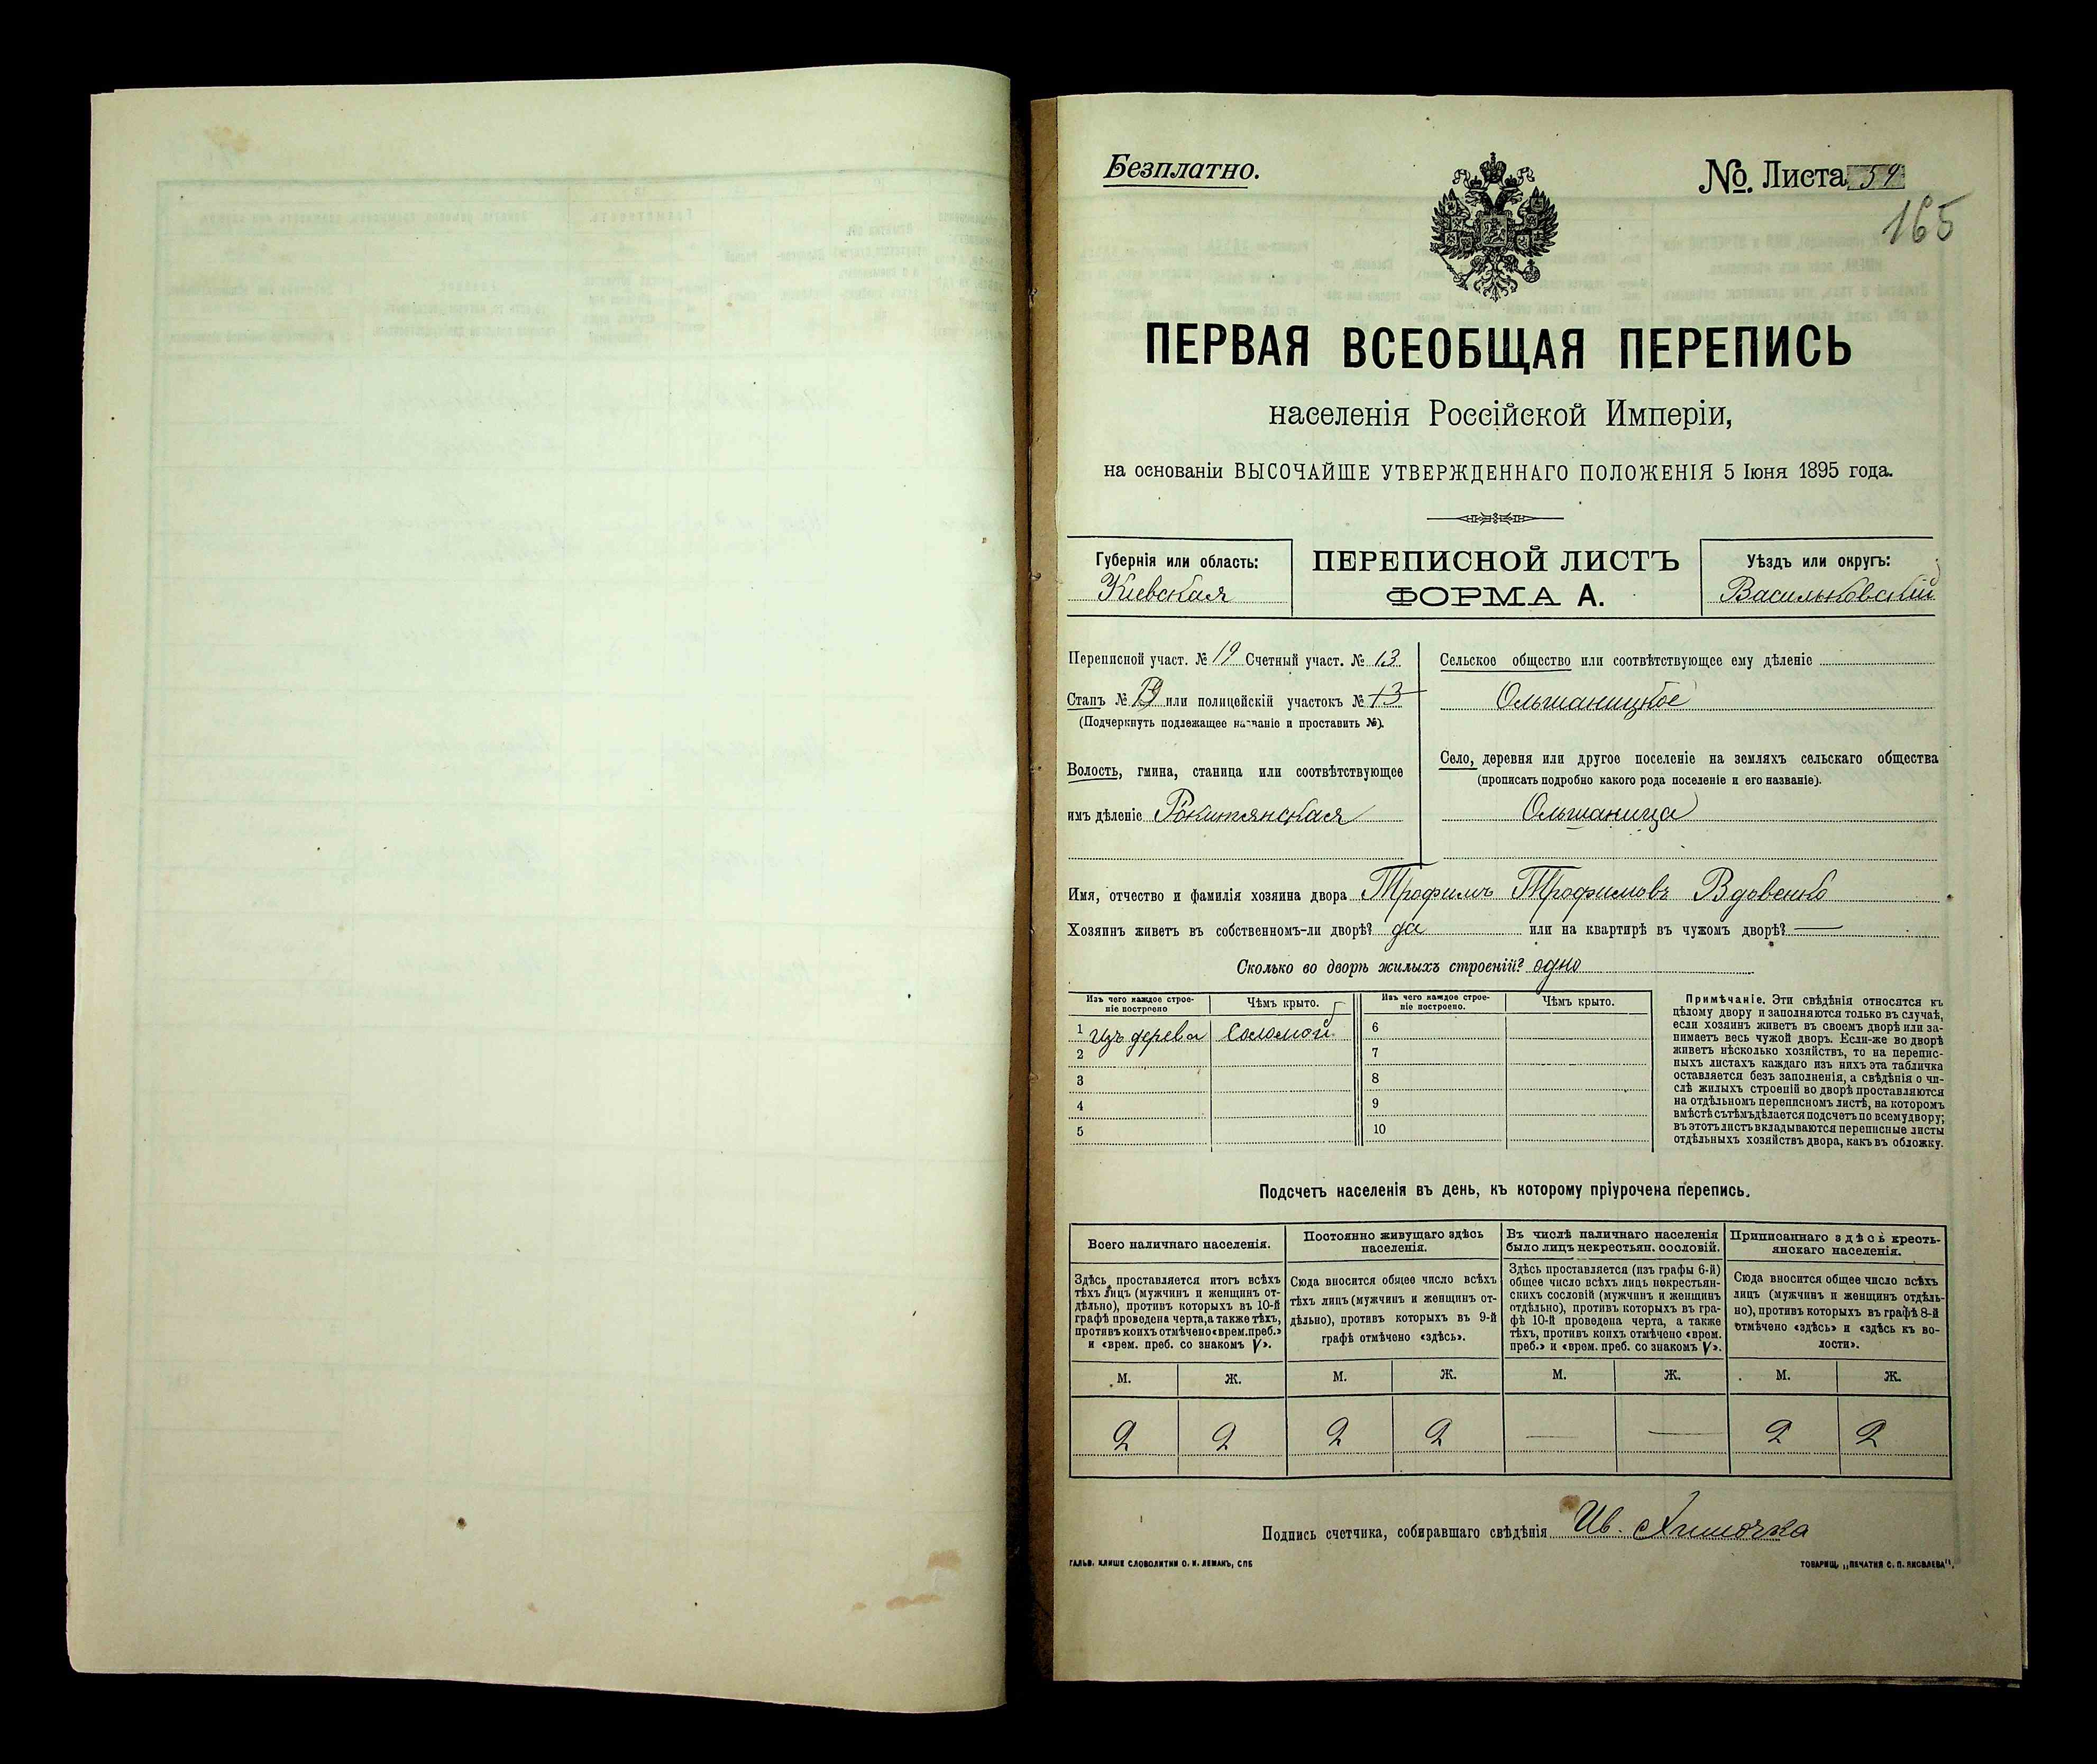 Безплатно.
№. Листа 54
165
ПЕРВАЯ ВСЕОБЩАЯ ПЕРЕПИСЬ
населенія Россійской Имперіи,
на основаніи ВЫСОЧАЙШЕ УТВЕРЖДЕННАГО ПОЛОЖЕНІЯ 5 Іюня 1895 года.
Губернія или область:
Кіевская
ПЕРЕПИСНОЙ ЛИСТЪ
ФОРМА А.
Уѣздъ или округъ:
Васильковскій
Переписной участ. № 19 Счетный участ. № 13
Станъ № или полицейскій участокъ № 13
(Подчеркнуть подлежащее названіе и проставить №).
Волость, гмина, станица или соотвѣтствующее
имъ дѣленіе Рокитянская
Сельское общество или соотвѣтствующее ему дѣленіе
Ольшаницкое
Село, деревня или другое поселеніе на земляхъ сельскаго общества
(прописать подробно какого рода поселеніе и его названіе).
Ольшаница
Имя, отчество и фамилія хозяина двора Трофимъ Трофимовъ Вдовенко
Хозяинъ живетъ въ собственномъ-ли дворѣ? да или на квартирѣ въ чужомъ дворѣ? —
Сколько во дворѣ жилыхъ строеній? одно
Изъ чего каждое строе-
ніе построено
Чѣмъ крыто.
Изъ чего каждое строе-
ніе построено.
Чѣмъ крыто.
1 изъ дерева Соломой
2
3
4
5
6
7
8
9
10
Примѣчаніе. Эти свѣдѣнія относятся къ
цѣлому двору и заполняются только въ случаѣ,
если хозяинъ живетъ въ своемъ дворѣ или за-
нимаетъ весь чужой дворъ. Если-же во дворѣ
живетъ нѣсколько хозяйствъ, то на перепис-
ныхъ листахъ каждаго изъ нихъ эта табличка
оставляется безъ заполненія, а свѣдѣнія о чи-
слѣ жилыхъ строеній во дворѣ проставляются
на отдѣльномъ переписномъ листѣ, на которомъ
вмѣстѣ съ тѣмъ дѣлается подсчетъ по всему двору;
въ этотъ листъ вкладываются переписные листы
отдѣльныхъ хозяйствъ двора, какъ въ обложку.
Подсчетъ населенія въ день, къ которому пріурочена перепись.
Всего наличнаго населенія.
Постоянно живущаго здѣсь
населенія.
Въ числѣ наличнаго населенія
было лицъ некрестьян. сословій.
Приписаннаго здѣсь кресть-
янскаго населенія.
Здѣсь проставляется итогъ всѣхъ
тѣхъ лицъ (мужчинъ и женщинъ от-
дѣльно), противъ которыхъ въ 10-й
графѣ проведена черта, а также тѣхъ,
противъ коихъ отмѣчено «врем. преб.»
и «врем. преб. со знакомъ V».
Сюда вносится общее число всѣхъ
тѣхъ лицъ (мужчинъ и женщинъ от-
дѣльно), противъ которыхъ въ 9-й
графѣ отмѣчено «здѣсь».
Здѣсь проставляется (изъ графы 6-й)
общее число всѣхъ лицъ некрестьян-
скихъ сословій (мужчинъ и женщинъ
отдѣльно), противъ которыхъ въ гра-
фѣ 10-й проведена черта, а также
тѣхъ, противъ коихъ отмѣчено «врем.
преб.» и «врем. преб. со знакомъ V».
Сюда вносится общее число всѣхъ
лицъ (мужчинъ и женщинъ отдѣль-
но), противъ которыхъ въ графѣ 8-й
отмѣчено «здѣсь» и «здѣсь къ во-
лости».
М. Ж. М. Ж. М. Ж. М. Ж.
2 2 2 2 — — 2 2
Подпись счетчика, собиравшаго свѣдѣнія Ив.
ГАЛЬВ. КЛИШЕ СЛОВОЛИТНИ О. И. ЛЕМАНЪ, СПБ
ТОВАРИЩ. „ПЕЧАТНЯ С. П. ЯКОВЛЕВА".